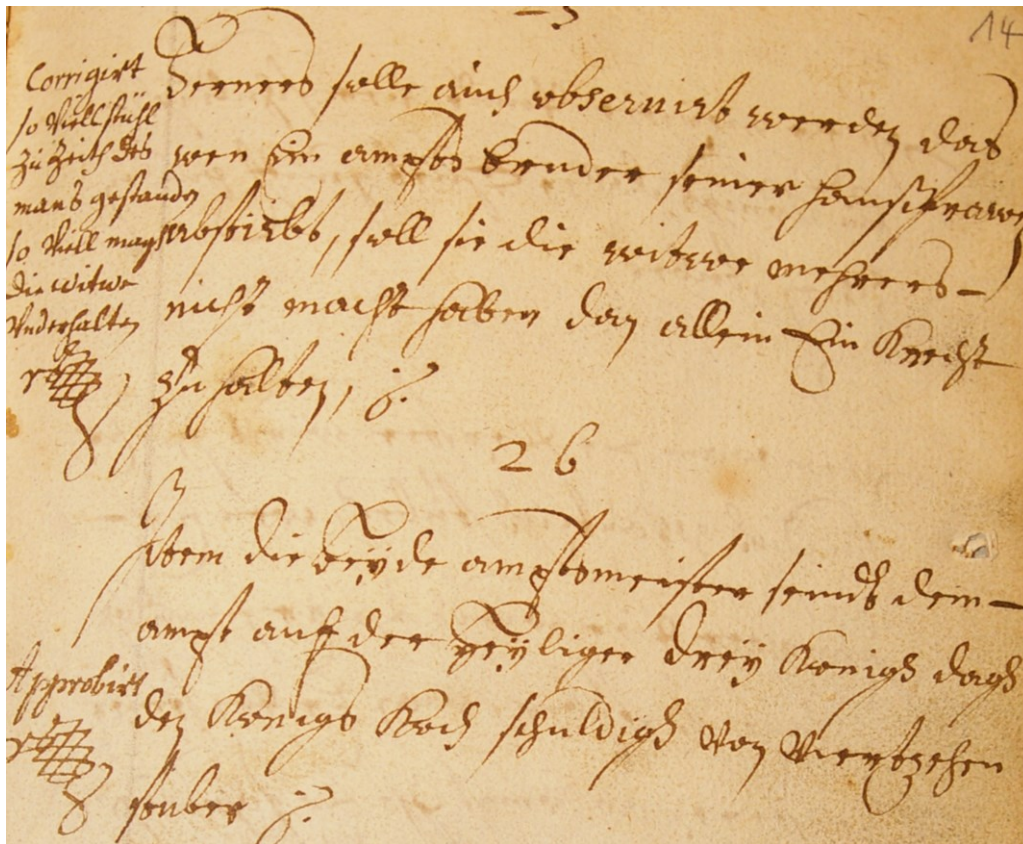 14
Corrigirt
so viell stühl
zu Zeith des
mans gestanden
so viell mag
die witwe
vnderhalten
Ferners solle auch obseruirt werden das
wen Ein ampts bruder seiner hausfrawen
abstirbt, soll sie die witwe mehrers
nicht macht haben dan allein Ein Knecht
zu halten,
26
Item die beÿde amptsmeister seindt dem
ampt auf der heÿliger dreÿ Konigh dagh
den Konigs Koch schuldigh von viertzehen
stuber
Approbirt